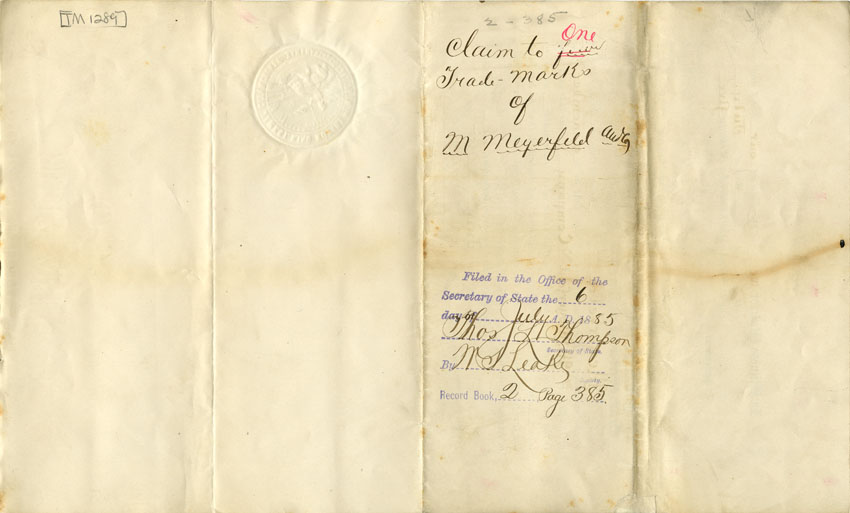 [TM 1289]
2-385
One
Claim to four
Trade-Marks
of
M Meyerfeld and Co
Filed in the Office of the
Secretary of State the 6
day of July A.D. 1885
Thos L Thompson
Secretary of State.
By W S Leake
Deputy.
Record Book, 2 Page 385.